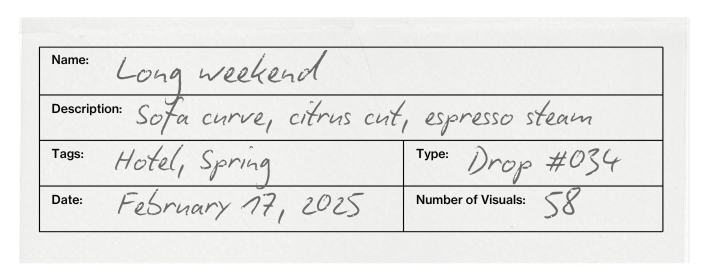 Name: Long weekend
Description: Sofa curve, citrus cut, espresso steam
Tags: Hotel, Spring Type: Drop #034
Date: February 17, 2025 Number of Visuals: 58